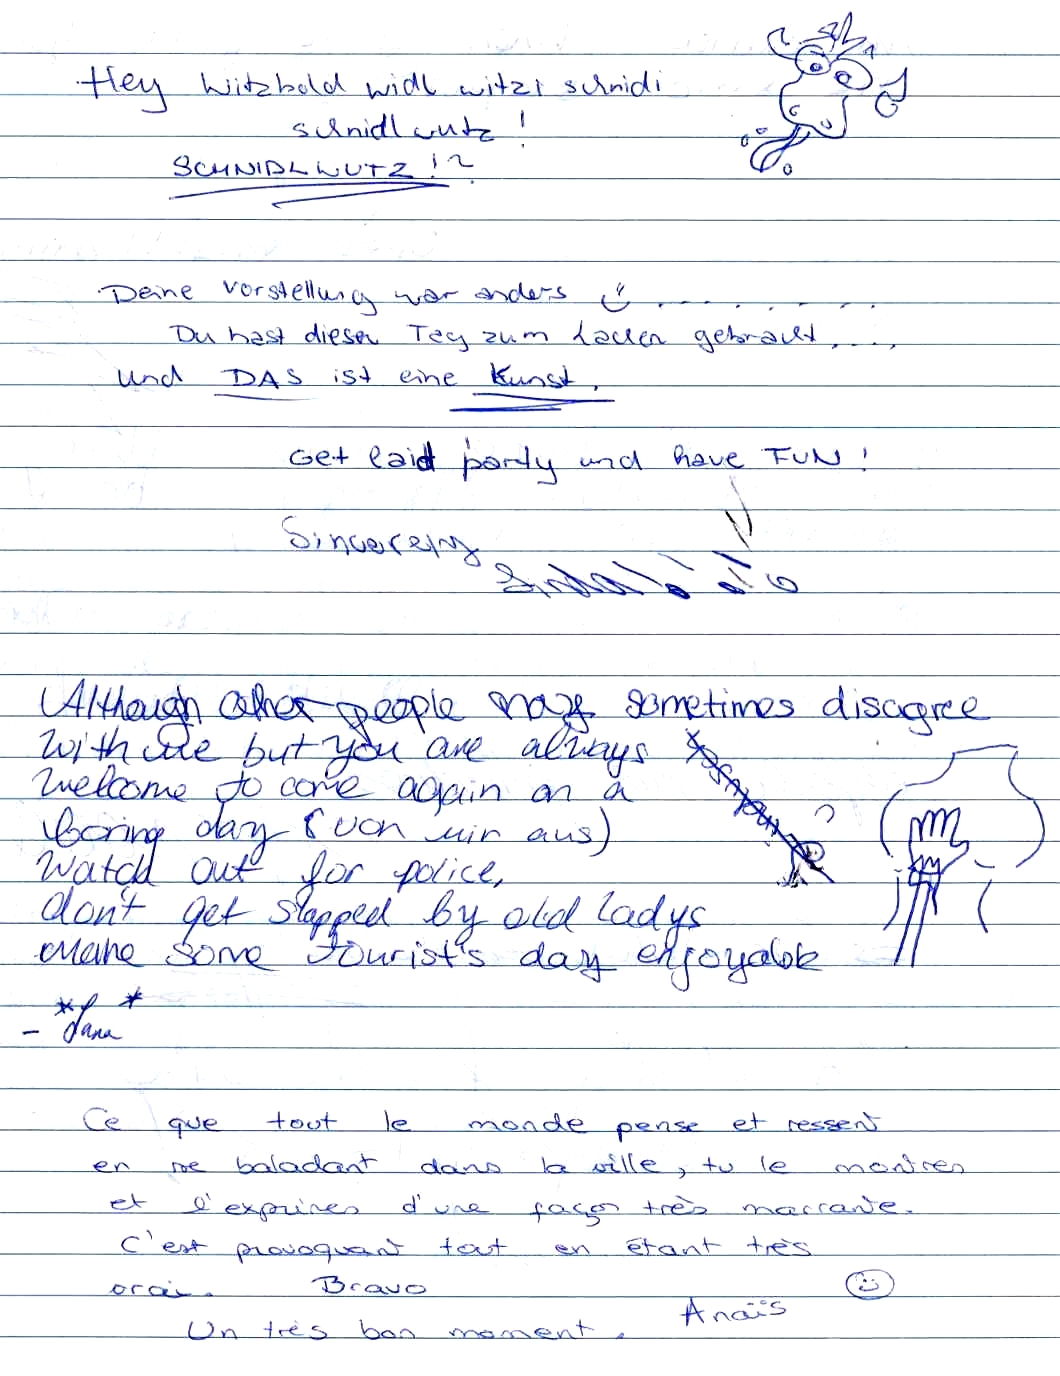 Hey Witzbold widl witzi schnidi
schnidlwutz!
SCHNIDLWUTZ!?
Deine Vorstellung war anders ........
Du hast diesen Tag zum Lachen gebracht.....
und DAS ist eine Kunst.
Get laid party und have FUN!
Sincerely
Although other people may sometimes disagree
with me but you are always
welcome to come again on a
boring day (von mir aus)
Watch out for police,
don't get slapped by old ladys
make some tourist's day enjoyable
- *Jana*
Ce que tout le monde pense et ressent
en se baladant dans la ville, tu le montres
et l'exprimes d'une façon très marrante.
C'est provoquant tout en étant très
vrai. Bravo
Anaïs
Un très bon moment.